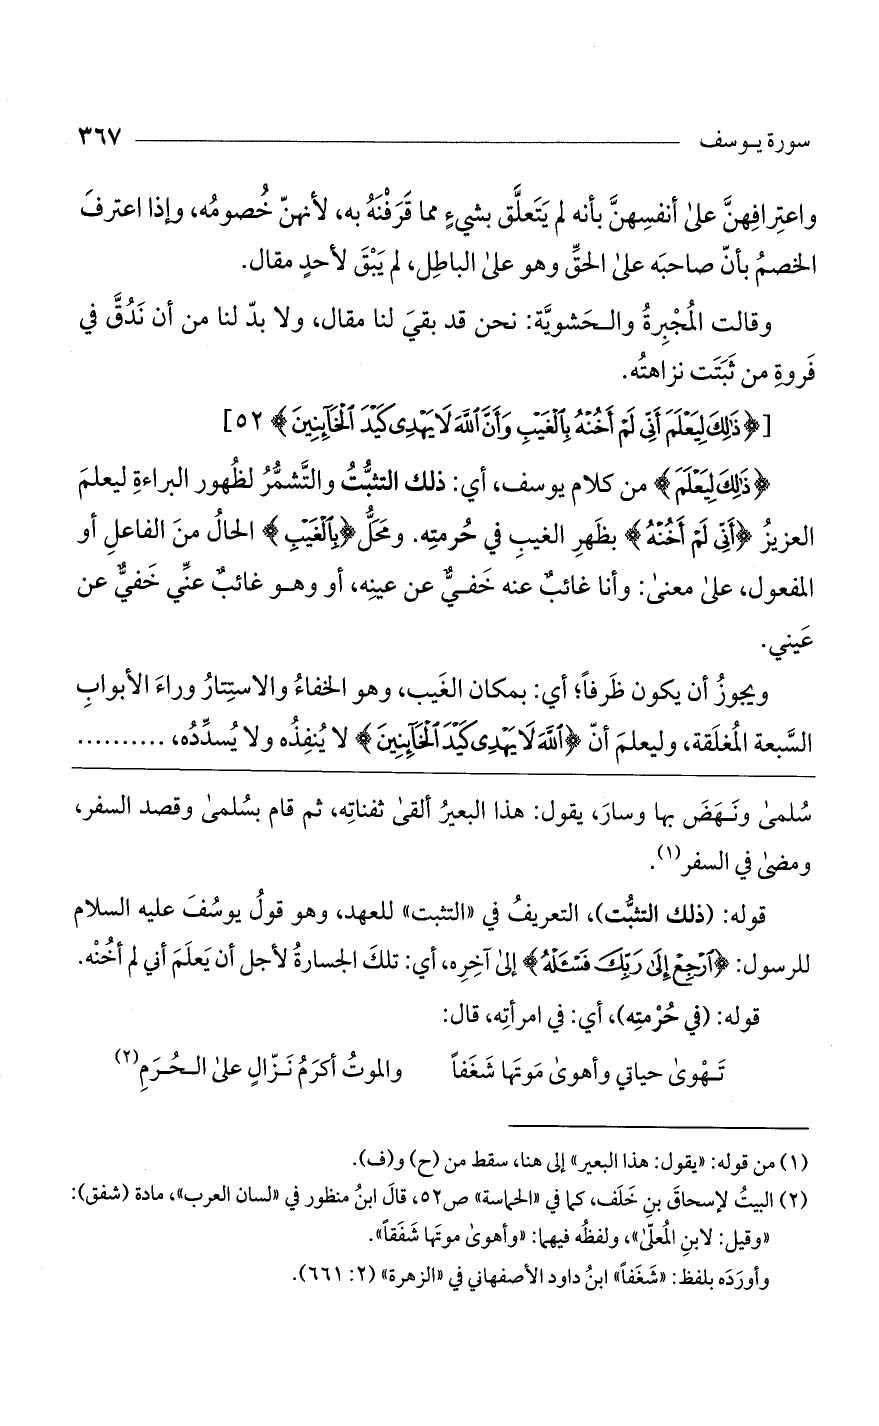 سورة يوسف ٣٦٧
واعتِرافِهنَّ علىٰ أنفسِهنَّ بأنه لم يَتَعلَّق بشيءٍ مما قَرَفْنَهُ به، لأنهنّ خُصومُه، وإذا اعترفَ
الخصمُ بأنّ صاحبَه علىٰ الحقِّ وهو علىٰ الباطِل، لم يَبْقَ لأحدٍ مقال.
وقالت المُجْبِرةُ والـحَشويَّة: نحن قد بقيَ لنا مقال، ولا بدّ لنا من أن نَدُقَّ في
فَروةِ من ثَبَتَت نزاهتُه.
[﴿ذَٰلِكَ لِيَعْلَمَ أَنِّي لَمْ أَخُنْهُ بِالْغَيْبِ وَأَنَّ اللَّهَ لَا يَهْدِي كَيْدَ الْخَائِنِينَ﴾ ٥٢]
﴿ذَٰلِكَ لِيَعْلَمَ﴾ من كلام يوسف، أي: ذلك التثبُّتُ والتَّشمُّرُ لظُهور البراءةِ ليعلمَ
العزيزُ ﴿أَنِّي لَمْ أَخُنْهُ﴾ بظَهرِ الغيبِ في حُرمتِه. ومحَلُّ ﴿بِالْغَيْبِ﴾ الحالُ منَ الفاعلِ أو
المفعول، علىٰ معنىٰ: وأنا غائبٌ عنه خَفـيٌّ عن عينِه، أو وهـو غائبٌ عنِّي خَفيٌّ عن
عَيني.
ويجوزُ أن يكون ظَرفاً؛ أي: بمكان الغَيب، وهو الخفاءُ والاستِتارُ وراءَ الأبوابِ
السَّبعة المُغلَقة، وليعلمَ أنّ ﴿اللَّهَ لَا يَهْدِي كَيْدَ الْخَائِنِينَ﴾ لا يُنفِذُه ولا يُسدِّدُه، ..........
سُلمىٰ ونَـهَضَ بها وسارَ، يقول: هذا البعيرُ ألقىٰ ثفناتِه، ثم قام بسُلمىٰ وقصد السفر،
ومضىٰ في السفر(١).
قوله: (ذلك التثبُّت)، التعريفُ في «التثبت» للعهد، وهو قولُ يوسُفَ عليه السلام
للرسول: ﴿ارْجِعْ إِلَىٰ رَبِّكَ فَسْئَلْهُ﴾ إلىٰ آخِرِه، أي: تلكَ الجسارةُ لأجل أن يَعلَمَ أني لم أخُنْه.
قوله: (في حُرْمتِه)، أي: في امرأتِه، قال:
تَـهْوىٰ حياتي وأهوىٰ مَوتَها شَغَفاً والموتُ أكرَمُ نَـزّالٍ علىٰ الـحُـرَمِ(٢)
(١) من قوله: «يقول: هذا البعير» إلى هنا، سقط من (ح) و(ف).
(٢) البيتُ لإسحاقَ بنِ خَلَف، كما في «الحماسة» ص٥٢، قالَ ابنُ منظور في «لسان العرب»، مادة (شفق):
«وقيل: لابنِ المُعلّىٰ»، ولفظُه فيهما: «وأهوىٰ موتَها شَفَقاً».
وأورَدَه بلفظ: «شَغَفاً» ابنُ داود الأصفهاني في «الزهرة» (٢: ٦٦١).